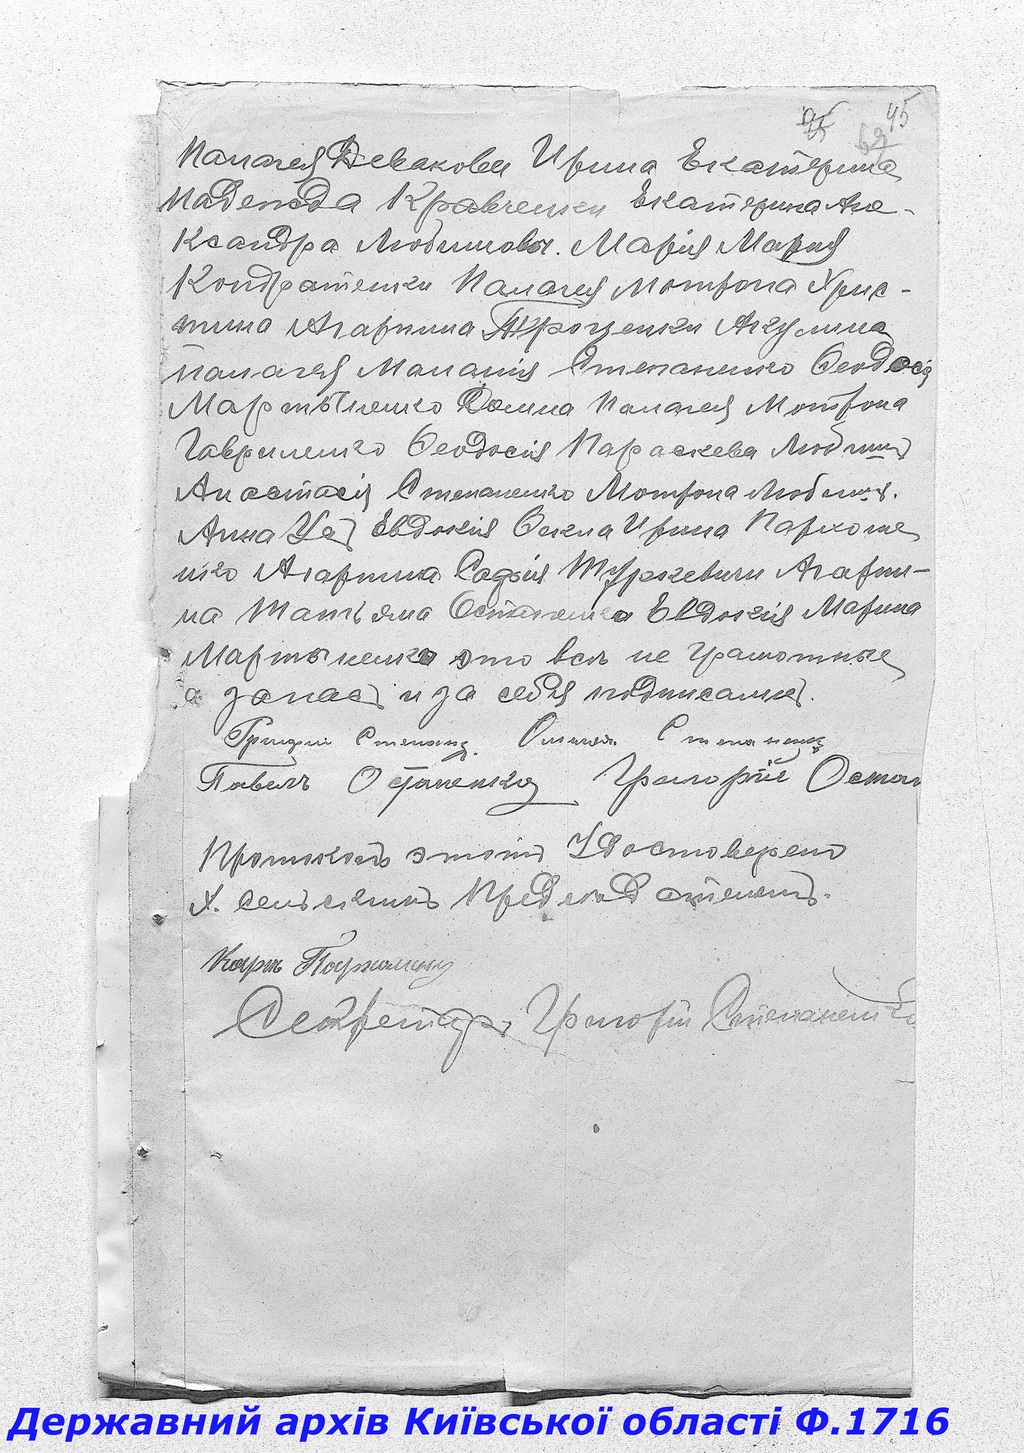 45
62
Палагея Дьякова Ирина Екатерина
Надежда Кравченки Екатерина Але-
Ксандра Любимовы. Мария Мария
Кондратенки Палагея Мотрона Хрис-
тина Агарпина Троценки Акулина
Палагея Малания Степаненко Феодосія
Мартыненко Домна Палагея Мотрона
Гавриленко Феодосия Параскева
Анастасія Степаненко Мотрона
Анна Евдокия Фекла Ирина Пархоме
нко Агарпина Софія Туркевичи Агарпи-
на Татьяна Остапенка Евдокия Марина
Мартыненко это всѣ не грамотные
а за нас и за себя подписались.
Григорий Степанен. Степаненко
Павелъ Остапенко Григорій Остап
Протоколъ этотъ Удостоверен
Х. сельскимъ Председателемъ.
Карпъ Пархоменко
Секретарь Григорій Степаненко
Державний архів Київської області Ф.1716